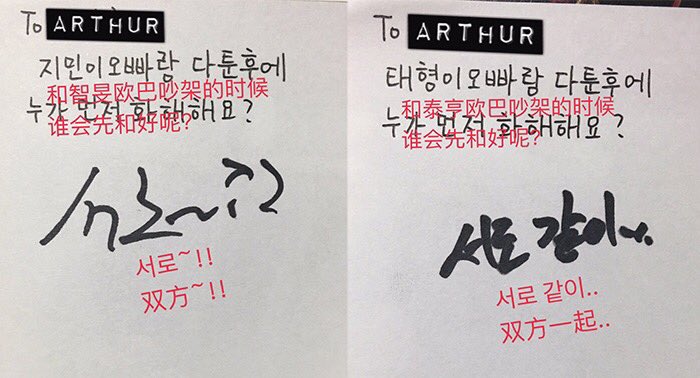 To ARTHUR
지민이오빠랑 다툰후에
和智旻欧巴吵架的时候
누가 먼저 화해해요?
谁会先和好呢?
서로~!!
서로~!!
双方~!!
To ARTHUR
태형이오빠랑 다툰후에
和泰亨欧巴吵架的时候
누가 먼저 화해해요?
谁会先和好呢?
서로 같이..
서로 같이..
双方一起..